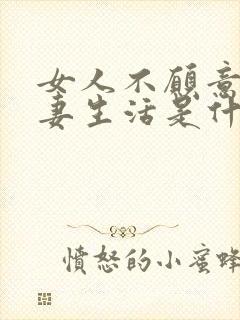 女人不愿意
妻生活是什
愤怒的小蜜蜂